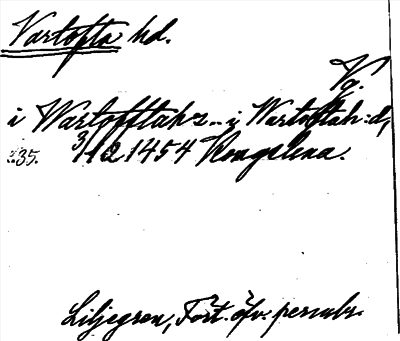 Vartofta hd.
Vg.
i Wartofftahr... i Wartoftah:d,
:35. 3/12 1454 Kongslena.
Liljegren, Fört. öfv. permbr.